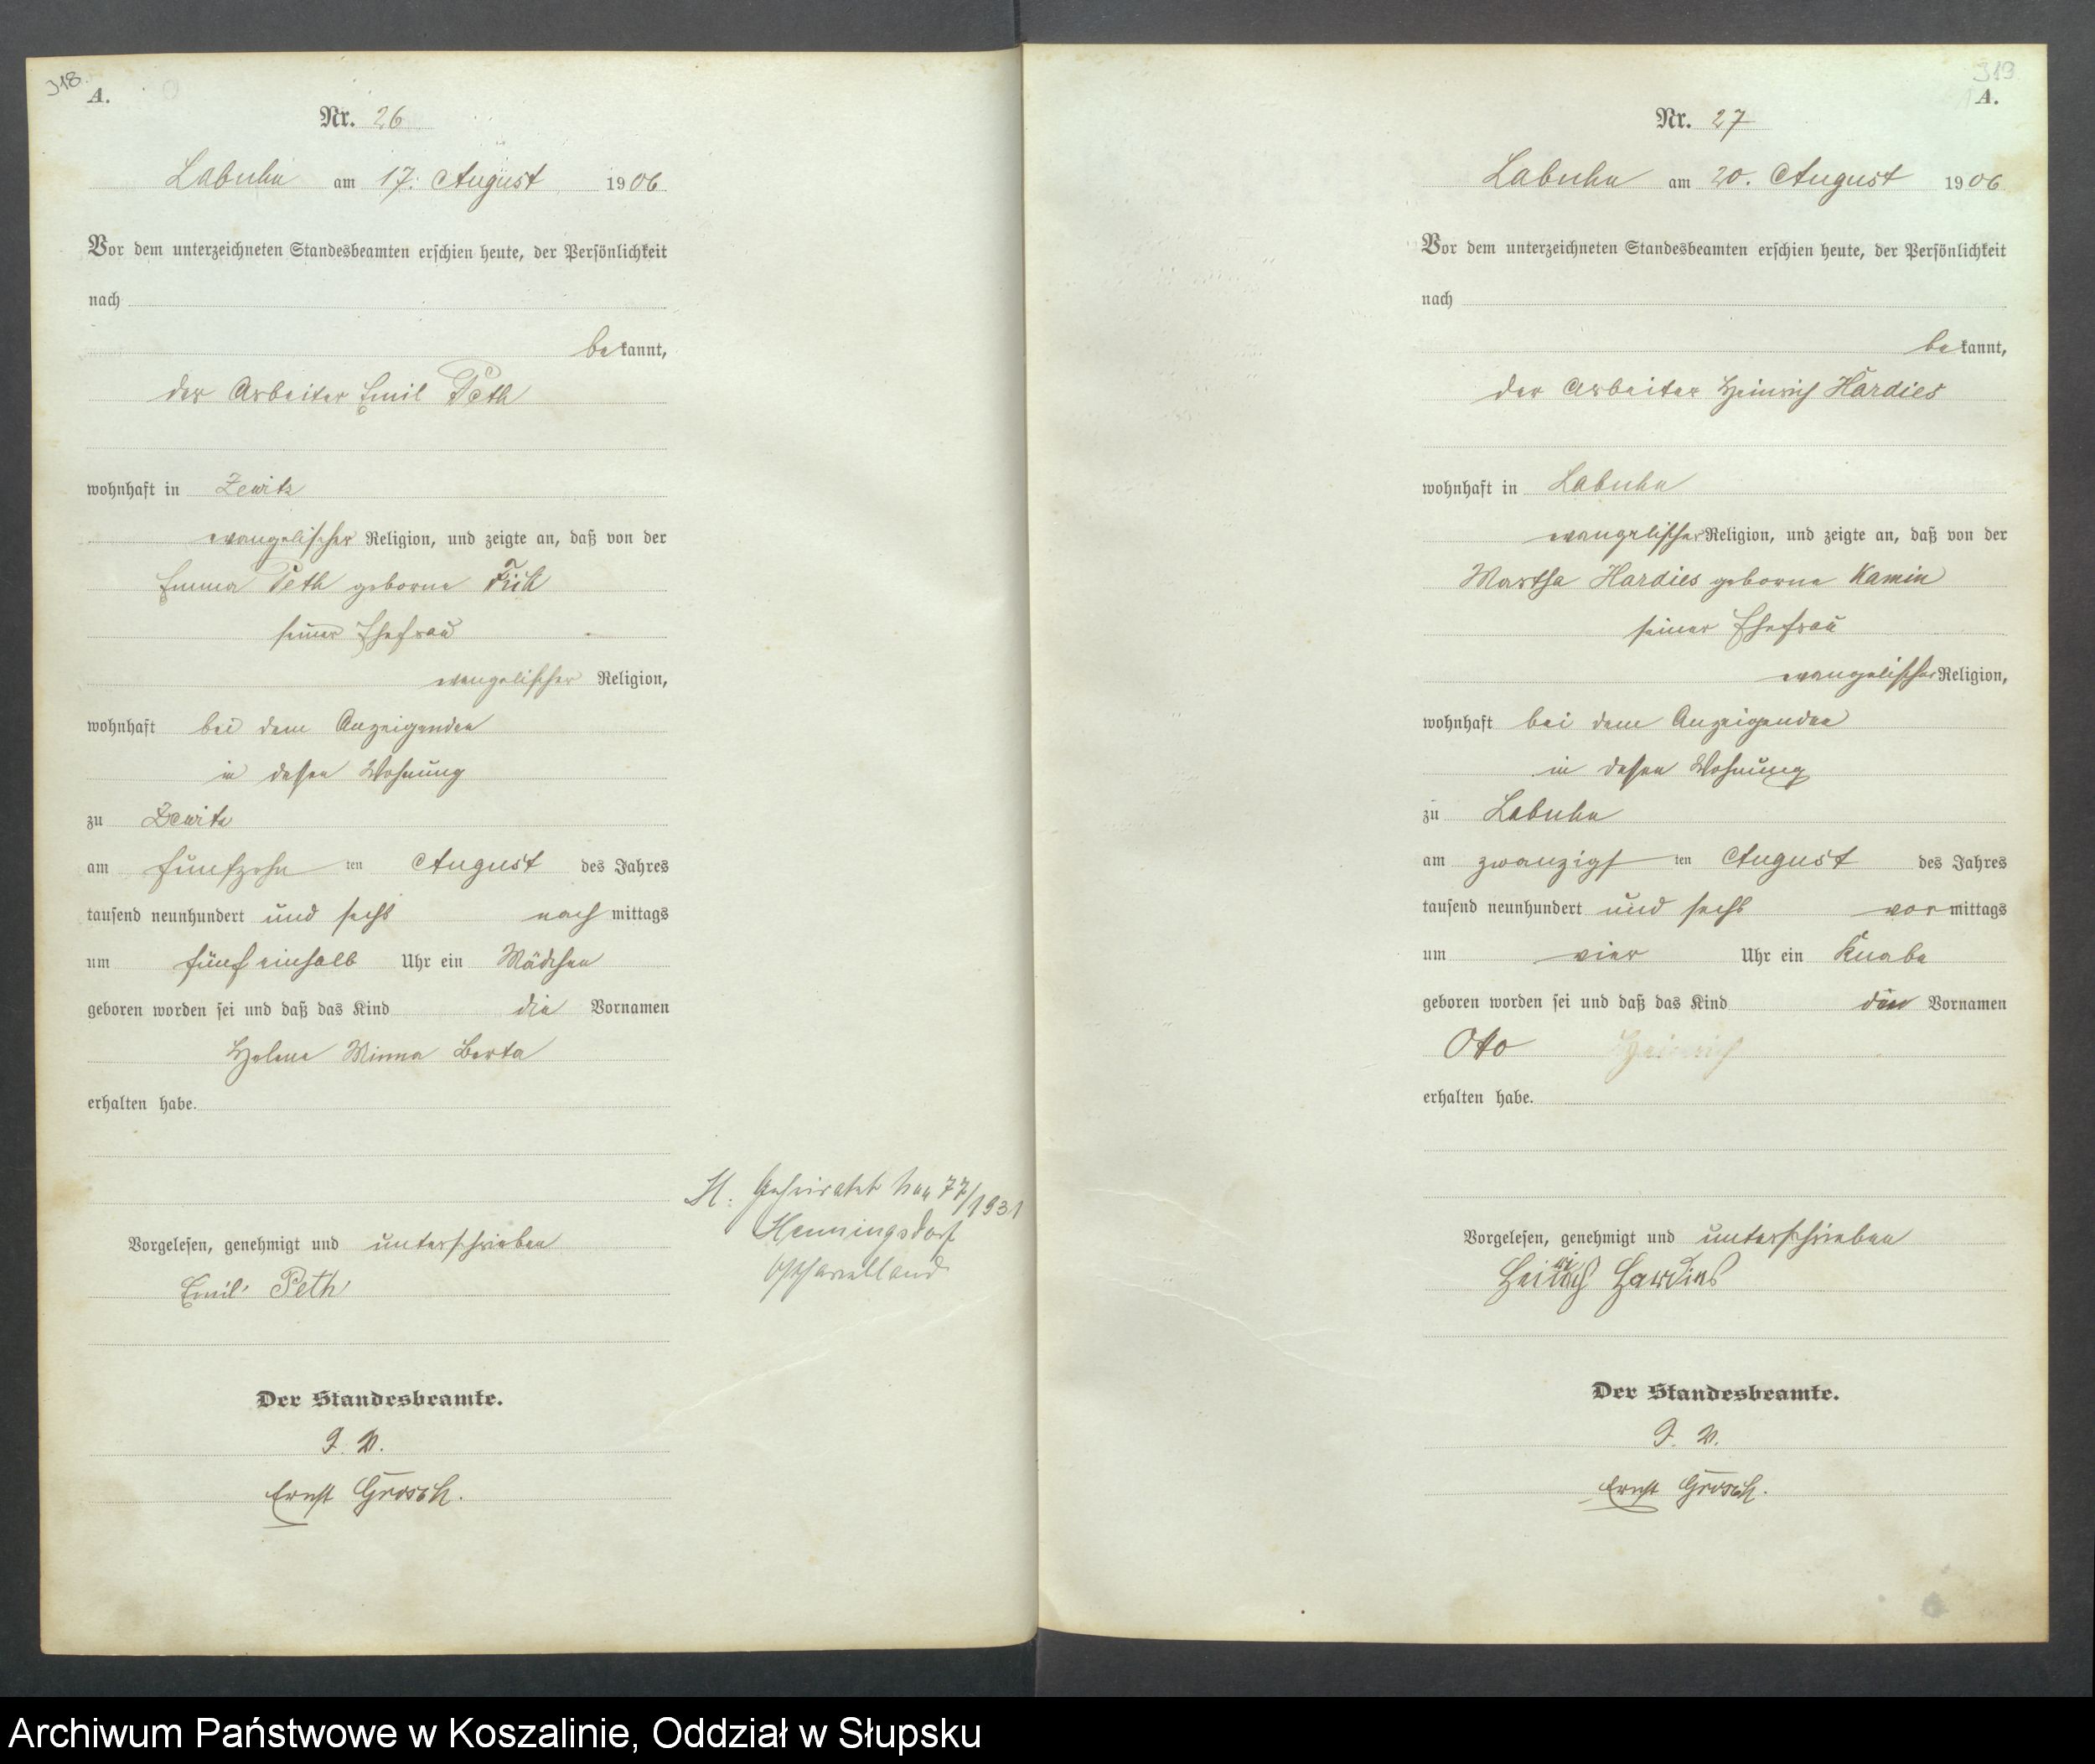 318.
A.
Nr. 26
Labuhn am 17. August 1906
Vor dem unterzeichneten Standesbeamten erschien heute, der Persönlichkeit
nach
bekannt,
der Arbeiter Emil Peth
wohnhaft in Zewitz
evangelischer Religion, und zeigte an, daß von der
Emma Peth geborne
seiner Ehefrau
evangelischer Religion,
wohnhaft bei dem Anzeigenden
in dessen Wohnung
zu Zewitz
am fünfzehn ten August des Jahres
tausend neunhundert und sechs nachmittags
um fünf einhalb Uhr ein Mädchen
geboren worden sei und daß das Kind die Vornamen
Helene Minna Berta
erhalten habe.
H. Geheiratet 77/1931
Hennigsdorf
Osthavelland
Vorgelesen, genehmigt und unterschrieben
Emil Peth
Der Standesbeamte.
J. V.
Ernst Grosch.
319
A.
Nr. 27
Labuhn am 20. August 1906
Vor dem unterzeichneten Standesbeamten erschien heute, der Persönlichkeit
nach
bekannt,
der Arbeiter Heinrich Hardies
wohnhaft in Labuhn
evangelischer Religion, und zeigte an, daß von der
Martha Hardies geborne Kamin
seiner Ehefrau
evangelischer Religion,
wohnhaft bei dem Anzeigenden
in dessen Wohnung
zu Labuhn
am zwanzigs ten August des Jahres
tausend neunhundert und sechs vormittags
um vier Uhr ein Knabe
geboren worden sei und daß das Kind den Vornamen
Otto Heinrich
erhalten habe.
Vorgelesen, genehmigt und unterschrieben
Heinrich Hardies
Der Standesbeamte.
J. V.
Ernst Grosch.
Archiwum Państwowe w Koszalinie, Oddział w Słupsku